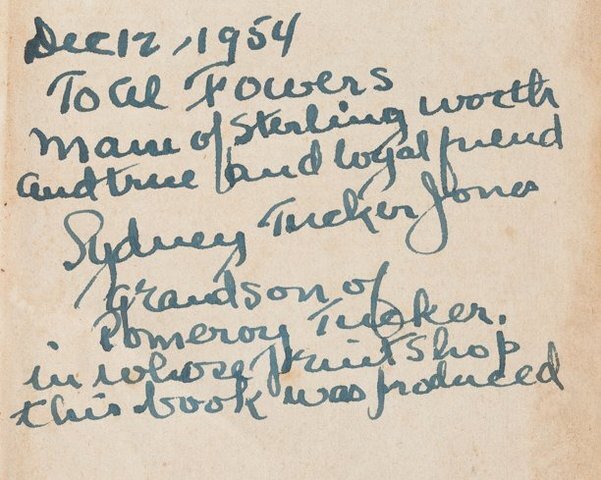 Dec 12, 1954
To Al Fowers
Man of Sterling worth
and true and loyal friend
Sydney Tucker Jones
Grandson of
Pomeroy Tucker.
in whose print shop
this book was produced